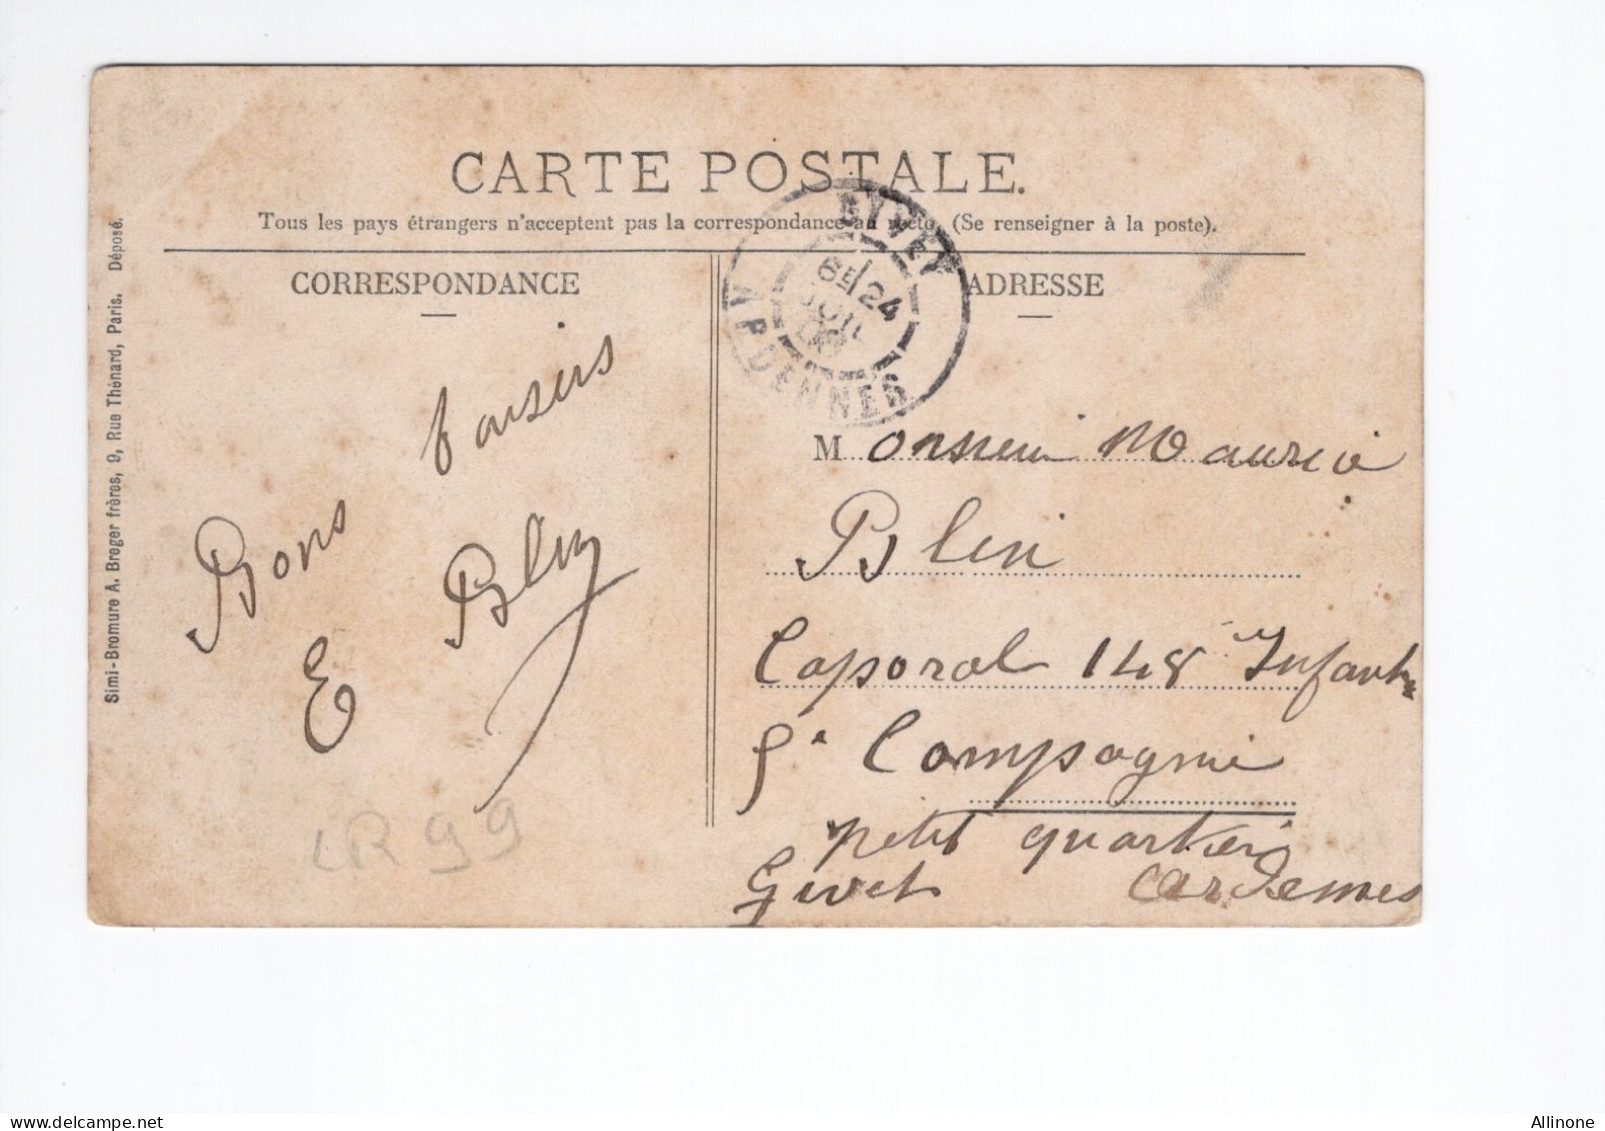 CARTE POSTALE.
Tous les pays étrangers n'acceptent pas la correspondance au recto. (Se renseigner à la poste).
CORRESPONDANCE
Bons baisers
E Blin
LR 99
Simi-Bromure A. Breger frères, 9, Rue Thénard, Paris. Déposé.
GIVET
8E/24
JUIL
ARDENNES
ADRESSE
Monsieur Maurice
Blin
Caporal 148 Infant
Compagnie
petit quartier
Givet Ardennes
Allinone